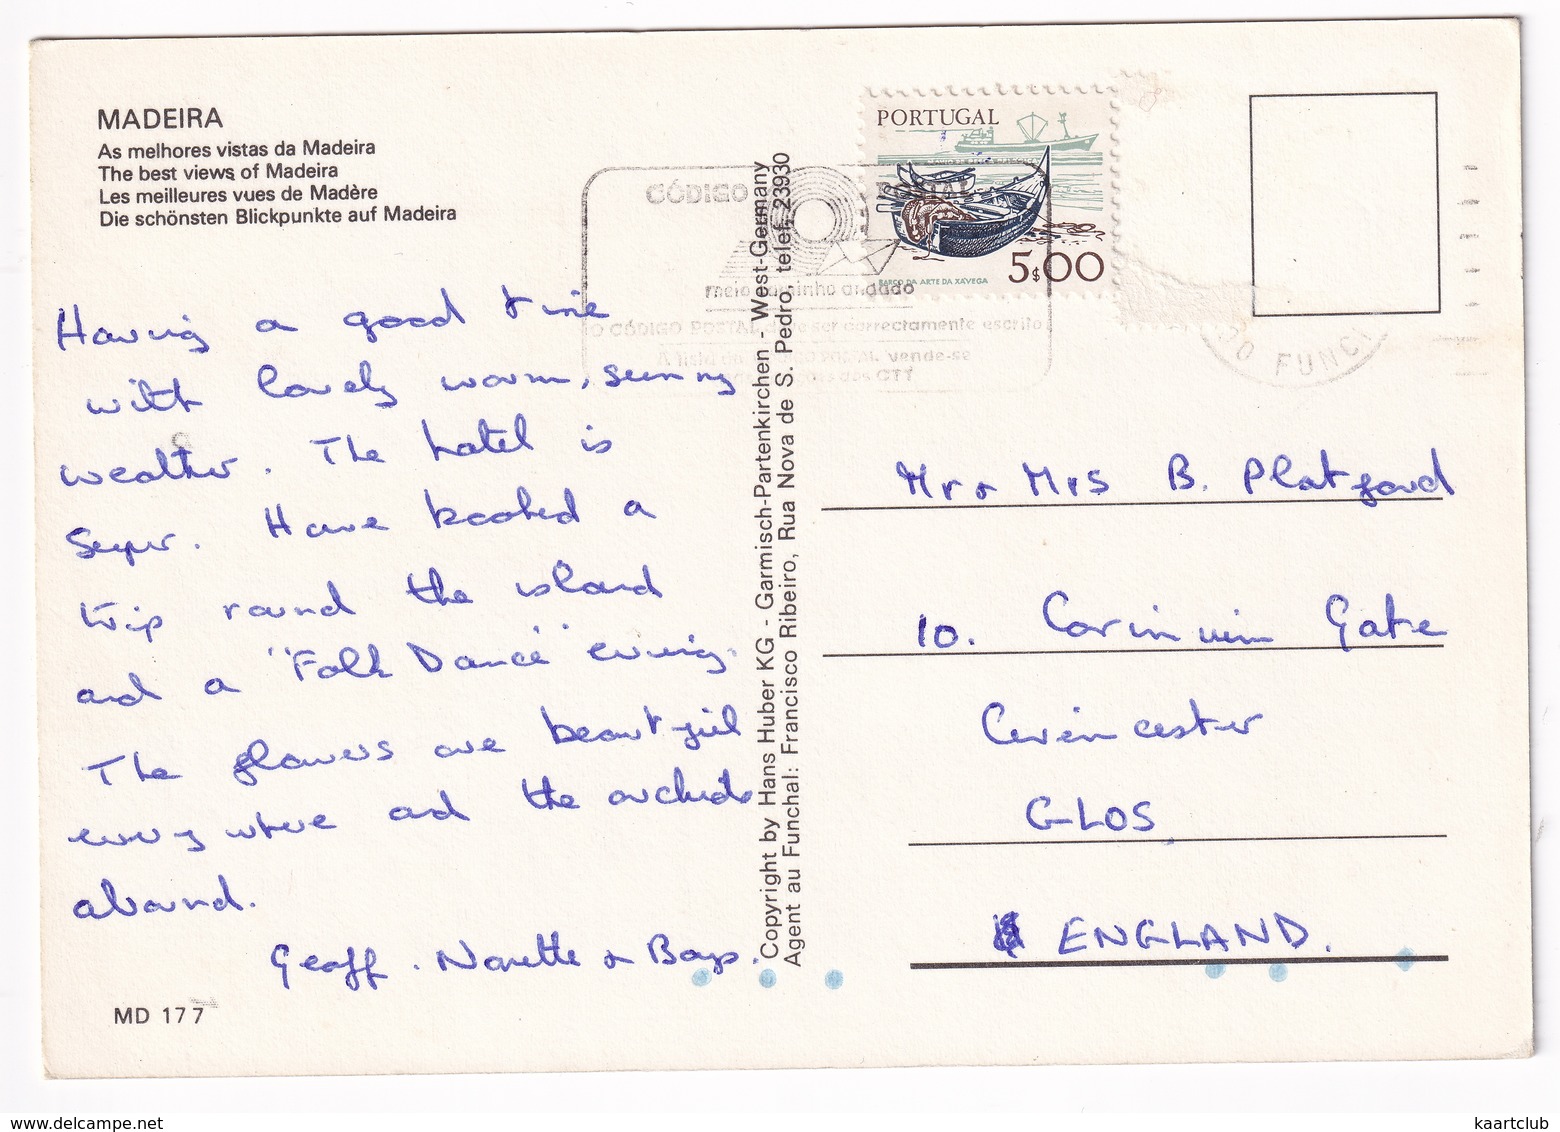 MADEIRA
As melhores vistas da Madeira
The best views of Madeira
Les meilleures vues de Madère
Die schönsten Blickpunkte auf Madeira
Having a good time
with lovely warm, sunny
weather. The hotel is
super. Have booked a
trip round the island
and a "Folk Dance" evening.
The flowers are beautiful
everywhere and the orchids
abound.
Geoff, Norette & Boys.
MD 177
Copyright by Hans Huber KG - Garmisch-Partenkirchen - West-Germany
Agent au Funchal: Francisco Ribeiro, Rua Nova de S. Pedro, telef. 23930
PORTUGAL
BARCO DA ARTE DA XÁVEGA
5$00
CÓDIGO POSTAL
meio caminho andado
O CÓDIGO POSTAL deve ser correctamente escrito
A lista do CÓDIGO POSTAL vende-se
CTT
DO FUNC
Mr & Mrs B. Platford
10. Corinium Gate
Cirencester
GLOS,
ENGLAND.
kaartclub